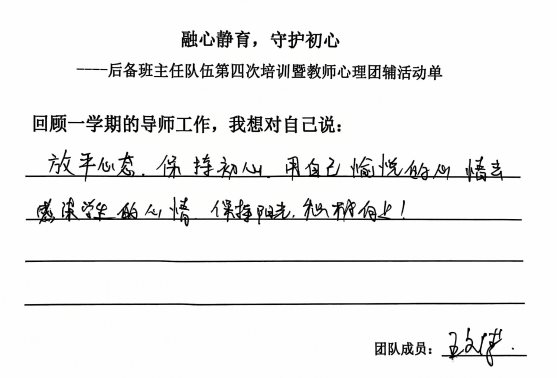 融心静育，守护初心
----后备班主任队伍第四次培训暨教师心理团辅活动单
回顾一学期的导师工作，我想对自己说：
放平心态、保持初心、用自己愉悦的心情去
感染学生的心情、保持阳光，积极向上！
团队成员：王文